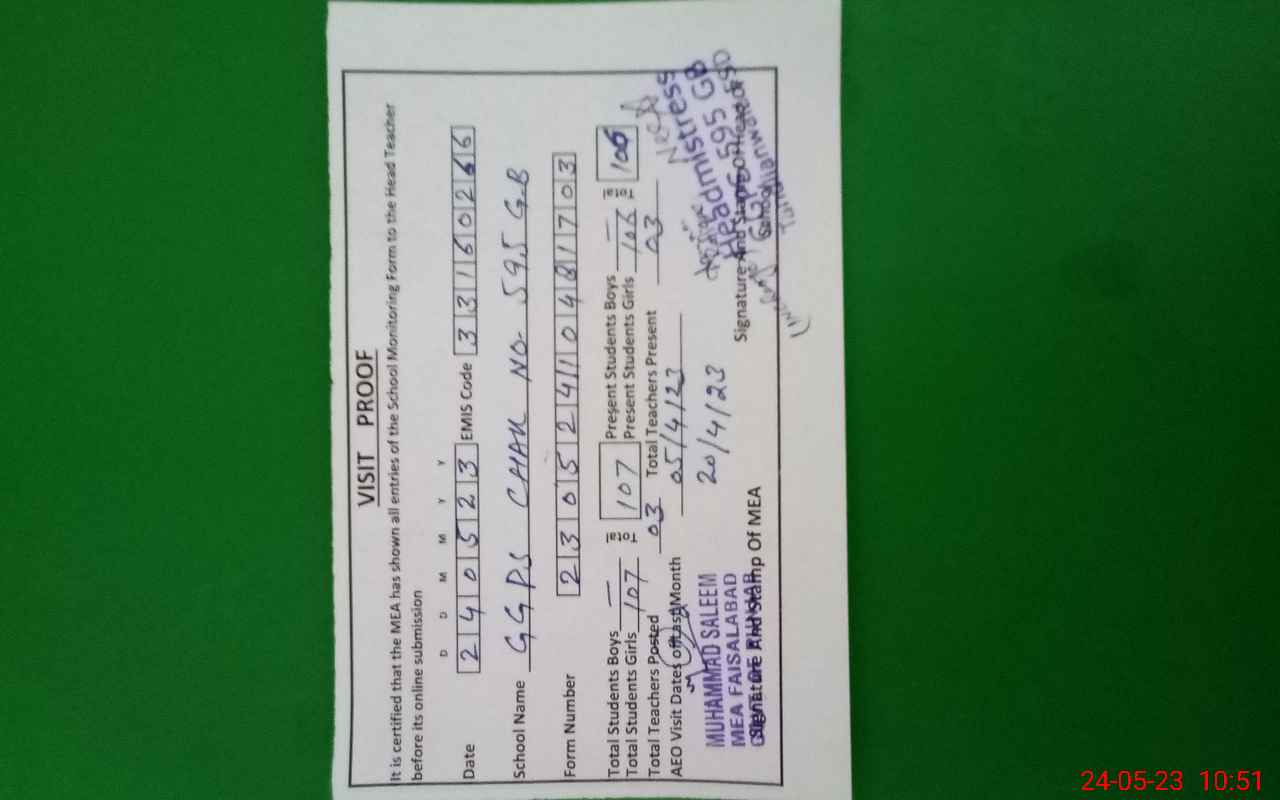 VISIT PROOF
It is certified that the MEA has shown all entries of the School Monitoring Form to the Head Teacher
before its online submission
D D M M Y Y
Date 240523 EMIS Code 33160266
School Name GGPS CHAK NO- 595 G.B
Form Number 230524110481703
Total Students Boys — Present Students Boys —
107 106
Total Students Girls 107 Present Students Girls 106
Total Teachers Posted 03 Total Teachers Present 03
AEO Visit Dates of Last Month 05/4/23
20/4/23
MUHAMMAD SALEEM
MEA FAISALABAD
Signature And Stamp Of MEA
Headmistress
595 GB
Signature And Stamp Of Head
School
24-05-23 10:51